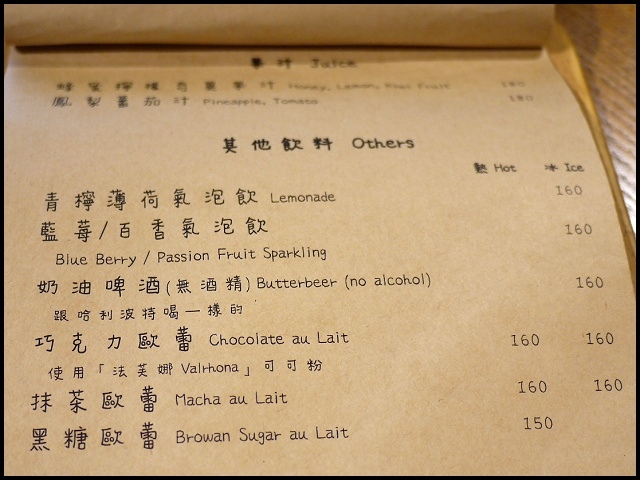 果汁 Juice
蜂蜜檸檬奇異果汁 Honey, Lemon, Kiwi Fruit 180
鳳梨蕃茄汁 Pineapple, Tomato 180
其他飲料 Others
熱 Hot 冰 Ice
青檸薄荷氣泡飲 Lemonade 160
藍莓/百香氣泡飲 160
Blue Berry / Passion Fruit Sparkling
奶油啤酒(無酒精) Butterbeer (no alcohol) 160
跟哈利波特喝一樣的
巧克力歐蕾 Chocolate au Lait 160 160
使用「法芙娜 Valrhona」可可粉
抹茶歐蕾 Macha au Lait 160 160
黑糖歐蕾 Browan Sugar au Lait 150